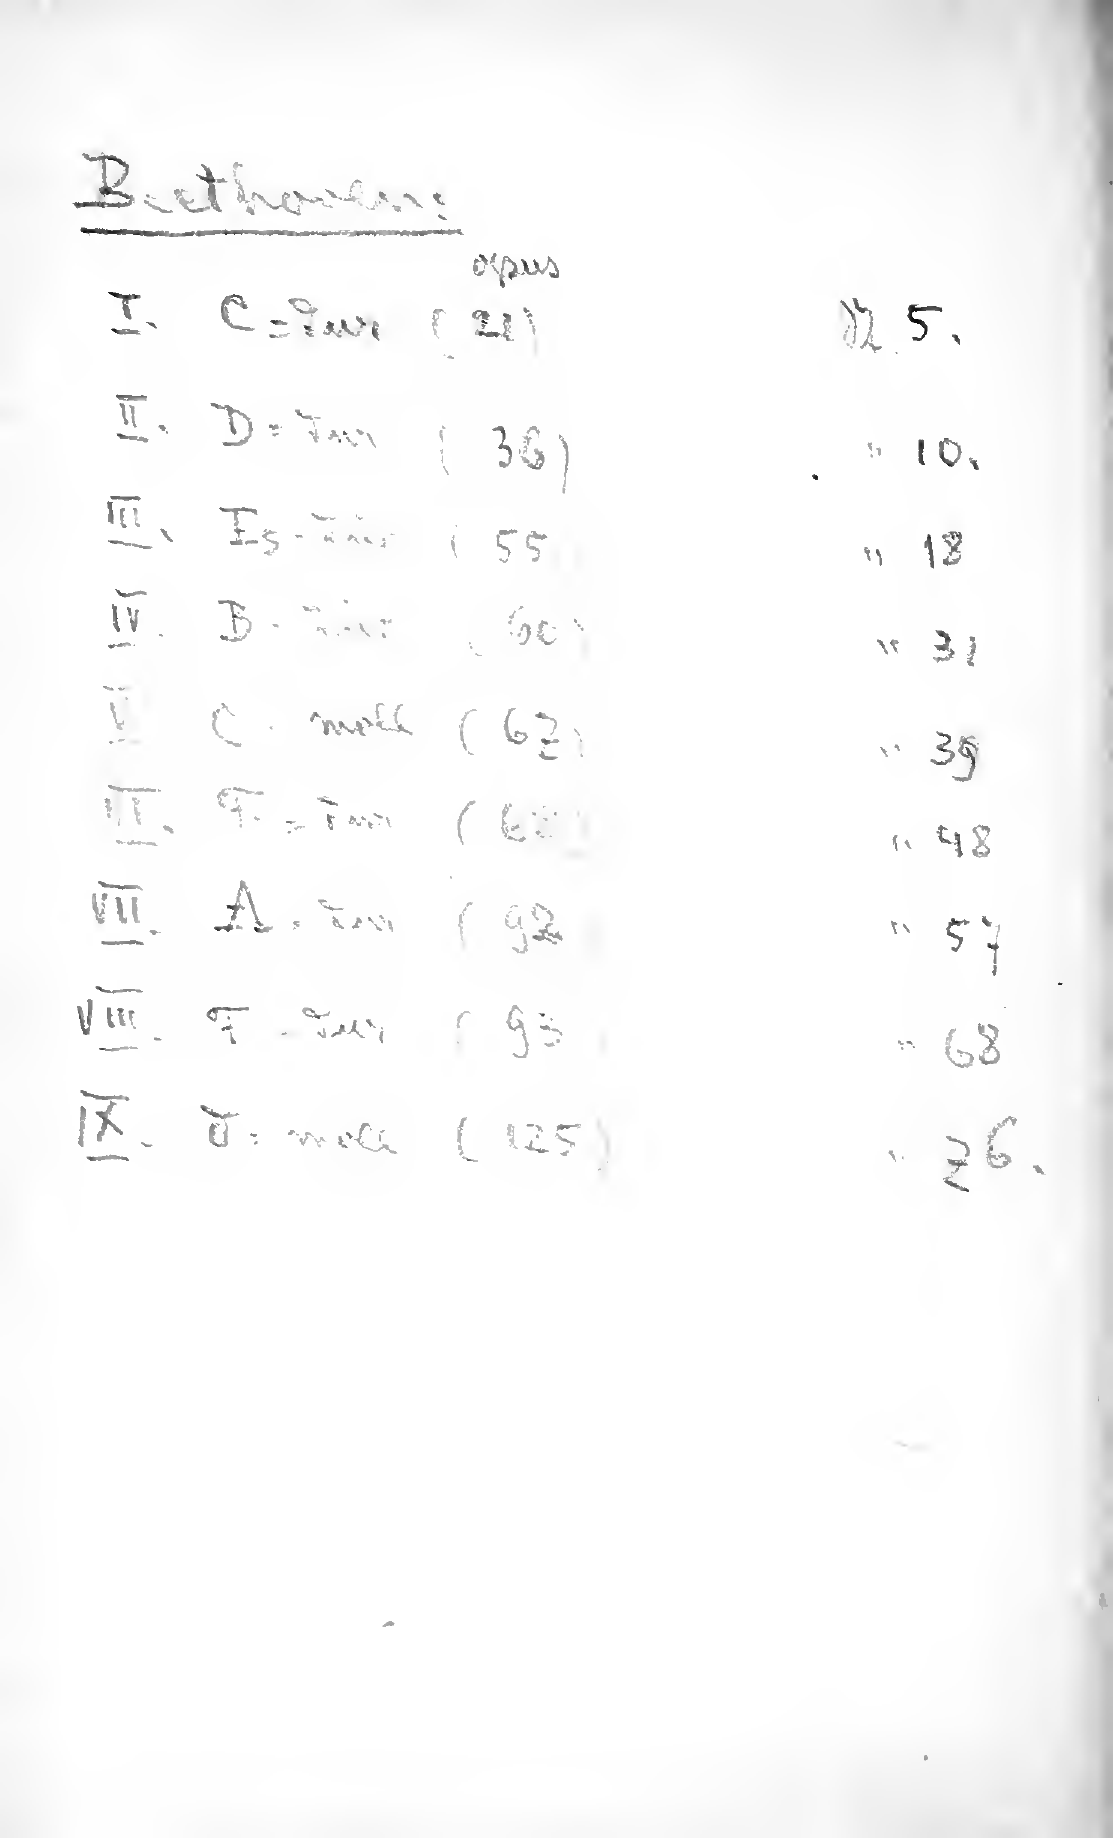 Beethoven:
opus
I. C=dur (21) N 5.
II. D=dur (36) " 10.
III. Es-dur (55 " 18
IV. B-dur (60) " 31
V C-moll (67) " 39
VI. F=dur (68) " 48
VII. A-dur (92 " 57
VIII. F-dur (93 " 68
IX. D-moll (125) " 76.